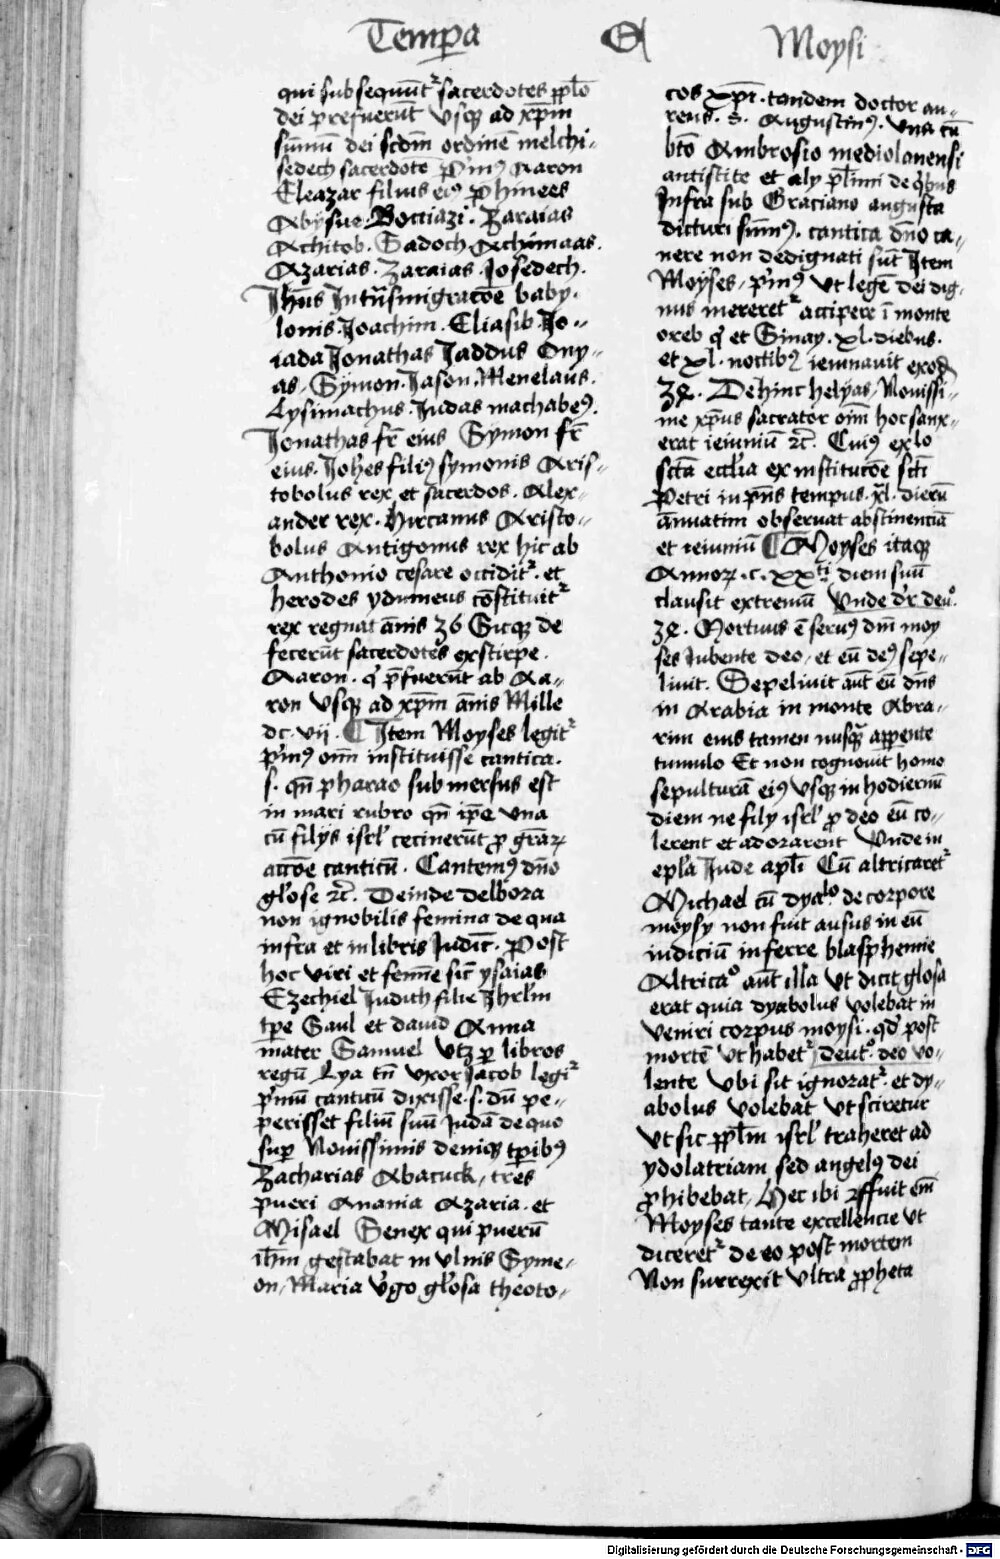 Tempa Et Moysi
qui subsequũt᷑ sacerdotes ppl̃o
dei prefuerũt vsq; ad xp̃m
sũmũ dei scdm̃ ordinẽ melchi-
sedech sacerdotẽ pͥmꝰ Aaron
Eleazar filius eiꝰ phinees
Abysue. Bocciazi. Zaraias
Achitob. Sadoch Achimaas.
Azarias. Zaraias. Josedech.
Jhũs In trãsmigracõe baby-
lonis. Joachim. Eliasib. Jo-
iada Jonathas Jaddus Ony-
as. Symon. Jason. Menelaus.
Lysimachus. Judas machabeꝰ.
Jonathas fr̃ eius Symon fr̃
eius. Joh̃es filiꝰ symonis Aris-
tobolus rex et sacerdos. Alex-
ander rex. hircanus Aristo-
bolus Antigonus rex hic ab
Anthonio cesare occidit᷑. et
herodes ydumeus cõstituit᷑
rex regnat ãnis 36 Sicq; de
fecerũt sacerdotes ex stirpe.
Aaron. qͥ p̃fuerũt ab Aa-
ron vsq; ad xp̃m ãnis Mille
dc. vij. ¶ Item Moyses legit᷑
pͥmꝰ om̃ instituisse cantica.
s. qñ pharao submersus est
in mari rubro qñ ip̃e vna
cũ filijs isrl̃ cecinerũt ꝓ gr̃aꝝ
accõe canticũ. Cantemꝰ dño
gl̃ose ⁊c̃. Deinde delbora
non ignobilis femina de qua
infra et in libris Judic̃. Post
hoc viri et femĩe sic̃ ysaias
Ezechiel Judith filie Jhrl̃m
tp̃e Saul et dauid Anna
mater Samuel vtz ꝑ libros
regũ Lya tñ vxor Jacob legi᷑
pͥmũ canticũ dixisse. s. dũ pe-
perisset filiũ suũ Judã de quo
supͣ Nouissimis deniq; tp̃ibꝰ
Zacharias Abacuck, tres
pueri Anania Azaria. et
Misael Senex qui puerũ
ih̃m gestabat in vlnis Syme-
on, Maria vͥgo gl̃osa theoto-
cos xp̃i. tandem doctor au-
reus. s. Augustinꝰ. vna cũ
bt̃o Ambrosio mediolanensi
antistite et aly pl̃imi de qͥbus
Infra sub Graciano augusta
dicturi sumꝰ. cantica dño ca-
nere non dedignati sũt Item
Moyses. pͥmꝰ vt legẽ dei dig-
nus mereret᷑ accipere ĩ monte
oreb qͥ et Sinay. xl. diebus.
et xl. noctibꝰ ieiunauit exod̃
34. Dehinc helyas, Nouissi-
me xp̃us sacrator oĩm hoc sanx-
erat ieiuniũ ⁊c̃. Cuiꝰ exlo
sctã eccl̃ia ex institucõe sct̃i
Petri in pñs tempus. xl. dierũ
ãnuatim obseruat abstinenciã
et ieiuniũ ¶ Moyses itaq;
Annoꝝ. c. xxti. diem suũ
clausit extremũ Vnde dr̃ deuᵒ.
34. Mortuus ẽ seruꝰ dm̃ moy
ses Iubente deo, et eũ deꝰ sepe-
liuit. Sepeliuit aũt eũ dñs
in Arabia in monte Abra-
rim eius tamen nusqͣ apparente
tumulo Et non cognouit homo
sepulturã eiꝰ vsq; in hodiernũ
diem ne filij isrl̃ ꝓ deo eũ co-
lerent et adorarent Vnde in
epl̃a Jude apl̃i Cũ altricaret᷑
Michael cũ dyaᵒlo de corpore
moysy non fuit ausus in eũ
iudiciũ inferre blasphemie
Altricaᵒ aũt illa vt dicit glosa
erat quia dyabolus volebat in
veniri corpus moysi. qd̃ post
mortẽ vt habet᷑ deutᵒ. deo vo-
lente vbi sit ignorat᷑. et dy-
abolus volebat vt sciretur
vt sic ppl̃m isrl̃ traheret ad
ydolatriam sed angelꝰ dei
ꝓhibebat, Hec ibi affuit eñ
Moyses tante excellencie vt
diceret᷑ de eo post mortem
Non surrexit vltra ꝓpheta
Digitalisierung gefördert durch die Deutsche Forschungsgemeinschaft - DFG